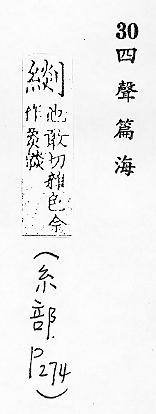 30 四聲篇海
敢切雜色今
作
（糸部 P274）